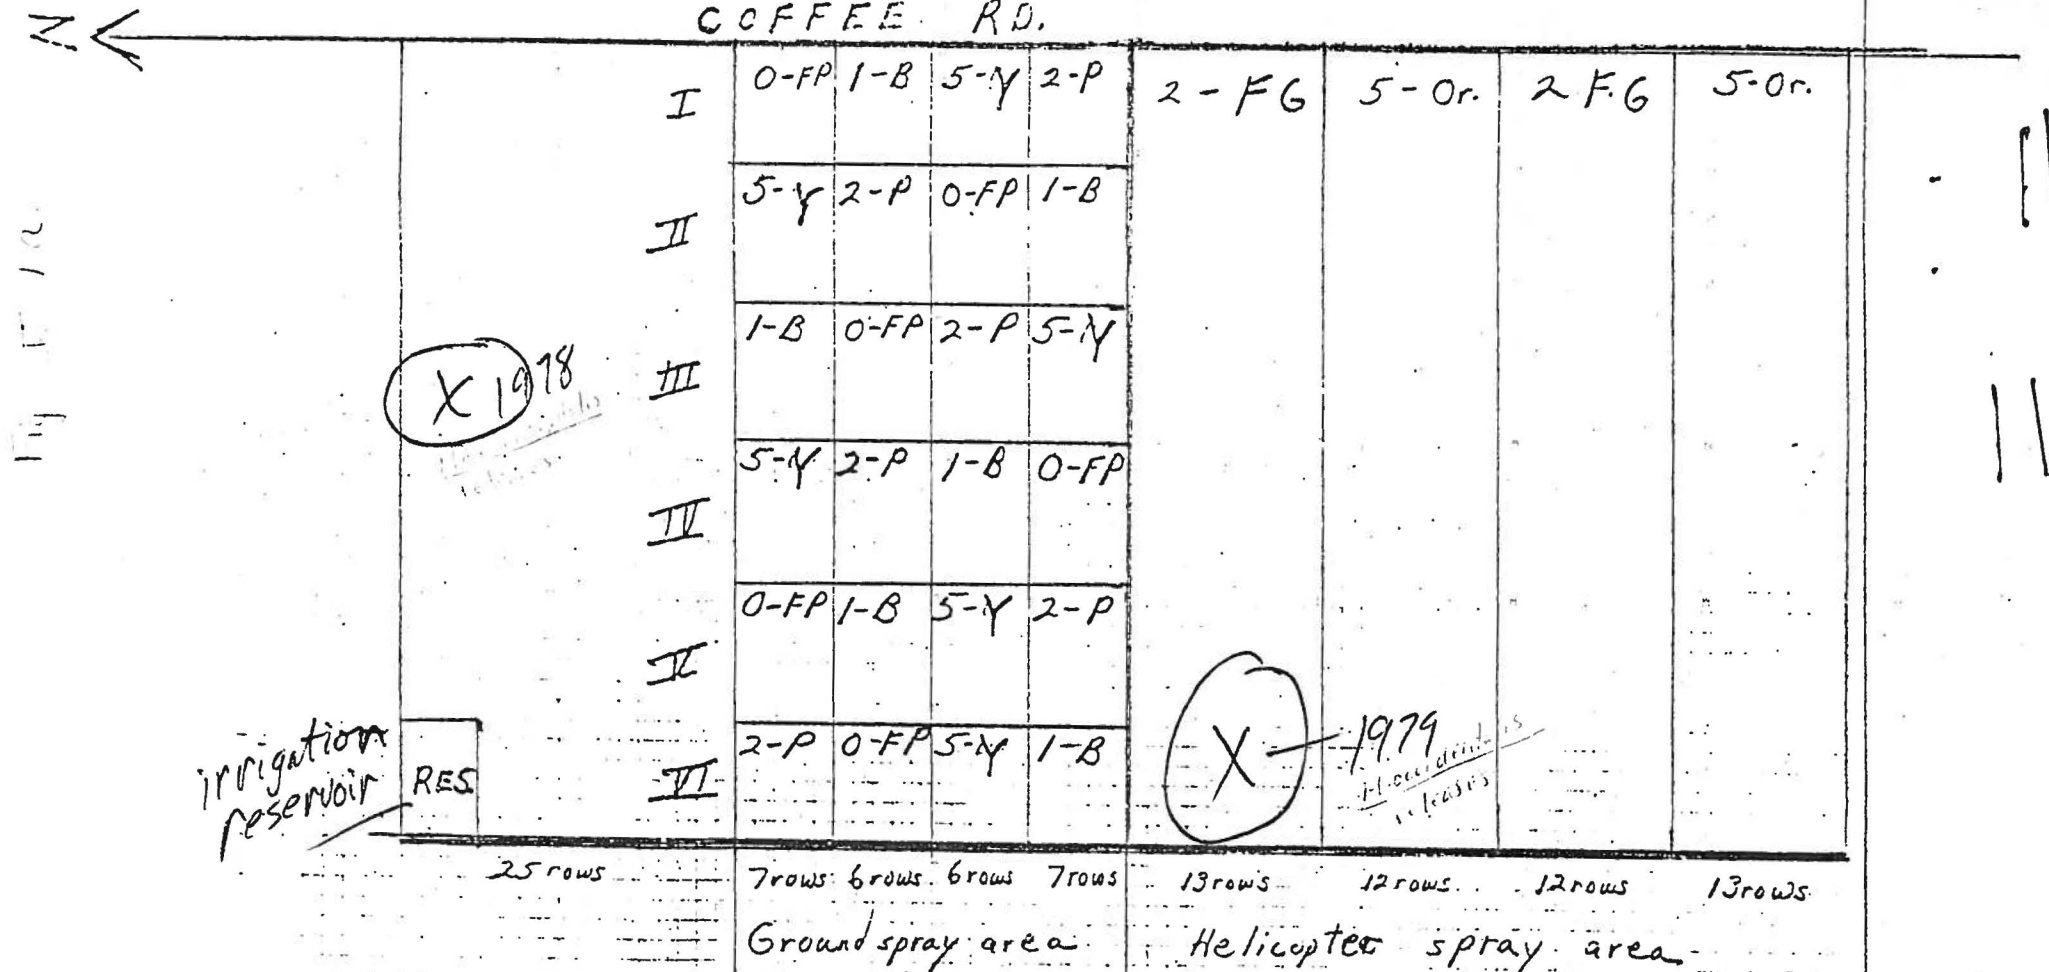 N
COFFEE RD.
I 0-FP 1-B 5-Y 2-P 2-FG 5-Or. 2 F.G 5-Or.
II 5-Y 2-P 0-FP 1-B
III 1-B 0-FP 2-P 5-Y
X 1978
IV 5-Y 2-P 1-B 0-FP
V 0-FP 1-B 5-Y 2-P
VI 2-P 0-FP 5-Y 1-B
irrigation
reservoir
RES.
X 1979
releases
25 rows 7rows 6rows 6rows 7rows 13rows 12rows 12rows 13rows
Ground spray area Helicopter spray area